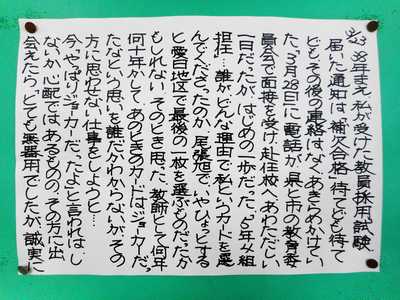 38年まえ、私が受けた教員採用試験
届いた通知は、補欠合格。待てども待て
どもその後の連絡はなく、あきらめかけてい
た。3月28日に電話が。県と市の教育委
員会で面接を受け、赴任校へ。あわただしい
一日だったが、はじめの一歩だった。5年4組
担任…誰がどんな理由で私というカードを選
んでくださったのか。尾張旭で、いやひょっとする
と愛日地区で最後の一枚を選ぶものだったか
もしれない。そのとき思った。教師として何年
何十年かして、あのときのカードはジョーカーだっ
たなという思いを誰だかわからないが、その
方に思わせない仕事をしようと…
今、「やっぱりジョーカーだったよ」と言われはし
ないか心配ではあるものの、その方に出
会えたら、「とても無器用でしたが、誠実に